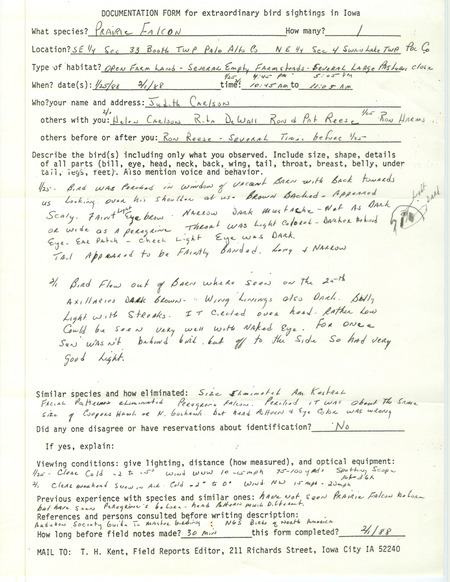 DOCUMENTATION FORM for extraordinary bird sightings in Iowa
What species? PRAIRIE FALCON How many? 1
Location? SE 1/4 Sec 33 Booth TWP Palo Alto Co NE 1/4 Sec 4 Swan Lake TWP Poc Co
Type of habitat? OPEN FARM LAND - SEVERAL EMPTY FARMSTEADS - SEVERAL LARGE PASTURES close
1/25 4:45 PM 5:05 PM
When? date(s): 1/25/88 2/1/88 time: 10:45 AM to 11:05 AM
Who? your name and address: Judith Carlson
others with you: 2/1 Helen Carlson Rita DeWall Ron & Pat Reese 1/25 Ron Harms
others before or after you: Ron Reese - Several Times before 1/25
Describe the bird(s) including only what you observed. Include size, shape, details
of all parts (bill, eye, head, neck, back, wing, tail, throat, breast, belly, under
tail, legs, feet). Also mention voice and behavior.
1/25- Bird was perched in window of vacant Barn with Back towards
us Looking over his shoulder at us - Brown Backed - Appeared
Scaly. Faint Light Eye brow. Narrow Dark Mustache - Not As Dark
or wide as a peregrine Throat was Light Colored - Darker Behind
Eye. Ear Patch - Cheek Light Eye was Dark.
Tail Appeared to be Faintly Banded. Long & Narrow
2/1 Bird Flew out of Barn where seen on the 25th
Axillaries DARK Brown - Wing Linings also Dark. Belly
Light with Streaks. IT Circled over head. Rather Low
Could be seen very well with Naked Eye. For once
Sun wasn't behind bird, but off to the Side so had very
Good Light.
Similar species and how eliminated: Size Eliminated Am. Kestrel
Facial Patterns eliminated Peregrine Falcon. Perched IT was about the same
size of Coopers Hawk or N. Goshawk but head Pattern & Eye Color was wrong
Did any one disagree or have reservations about identification? No
If yes, explain:
Viewing conditions: give lighting, distance (how measured), and optical equipment:
1/25- Clear Cold -2 to -5° Wind WNW 10-15 mph 75-100 yards Spotting Scope
2/1 Clear weekend Snow in Air. Cold -2° to 0° Wind NW 15 mph - 20 mph
Previous experience with species and similar ones: have not seen Prairie Falcon before
but have seen Peregrine's before - head Pattern much Different.
References and persons consulted before writing description:
Audubon Society Guide To Master Birding : NGS Birds of North America
How long before field notes made? 30 min this form completed? 2/1/88
MAIL TO: T. H. Kent, Field Reports Editor, 211 Richards Street, Iowa City IA 52240